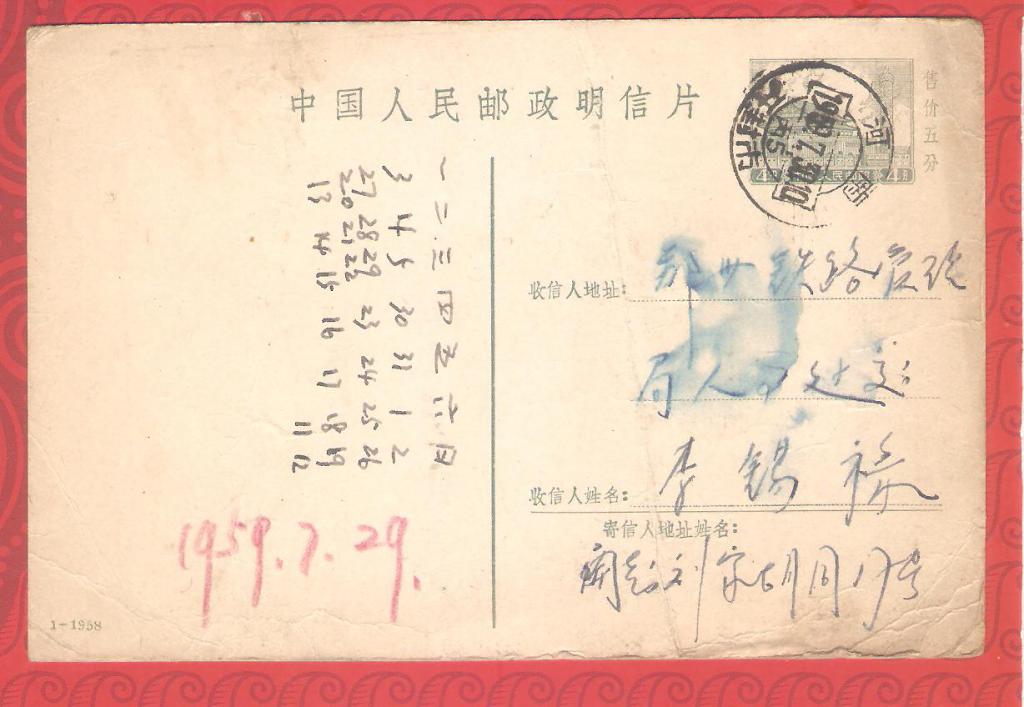 中国人民邮政明信片
售价五分
4分 中国人民邮政 4分
河南
1959.7.30.10
收信人地址：郑州铁路
局人
收信人姓名：李锡禄
寄信人地址姓名：
开封刘家胡同17号
一 二 三 四 五 六 日
3 4 5 30 31 1 2
27 28 29 23 24 25 26
20 21 22 16 17 18 19
13 14 15 11 12
1959.7.29.
1-1958